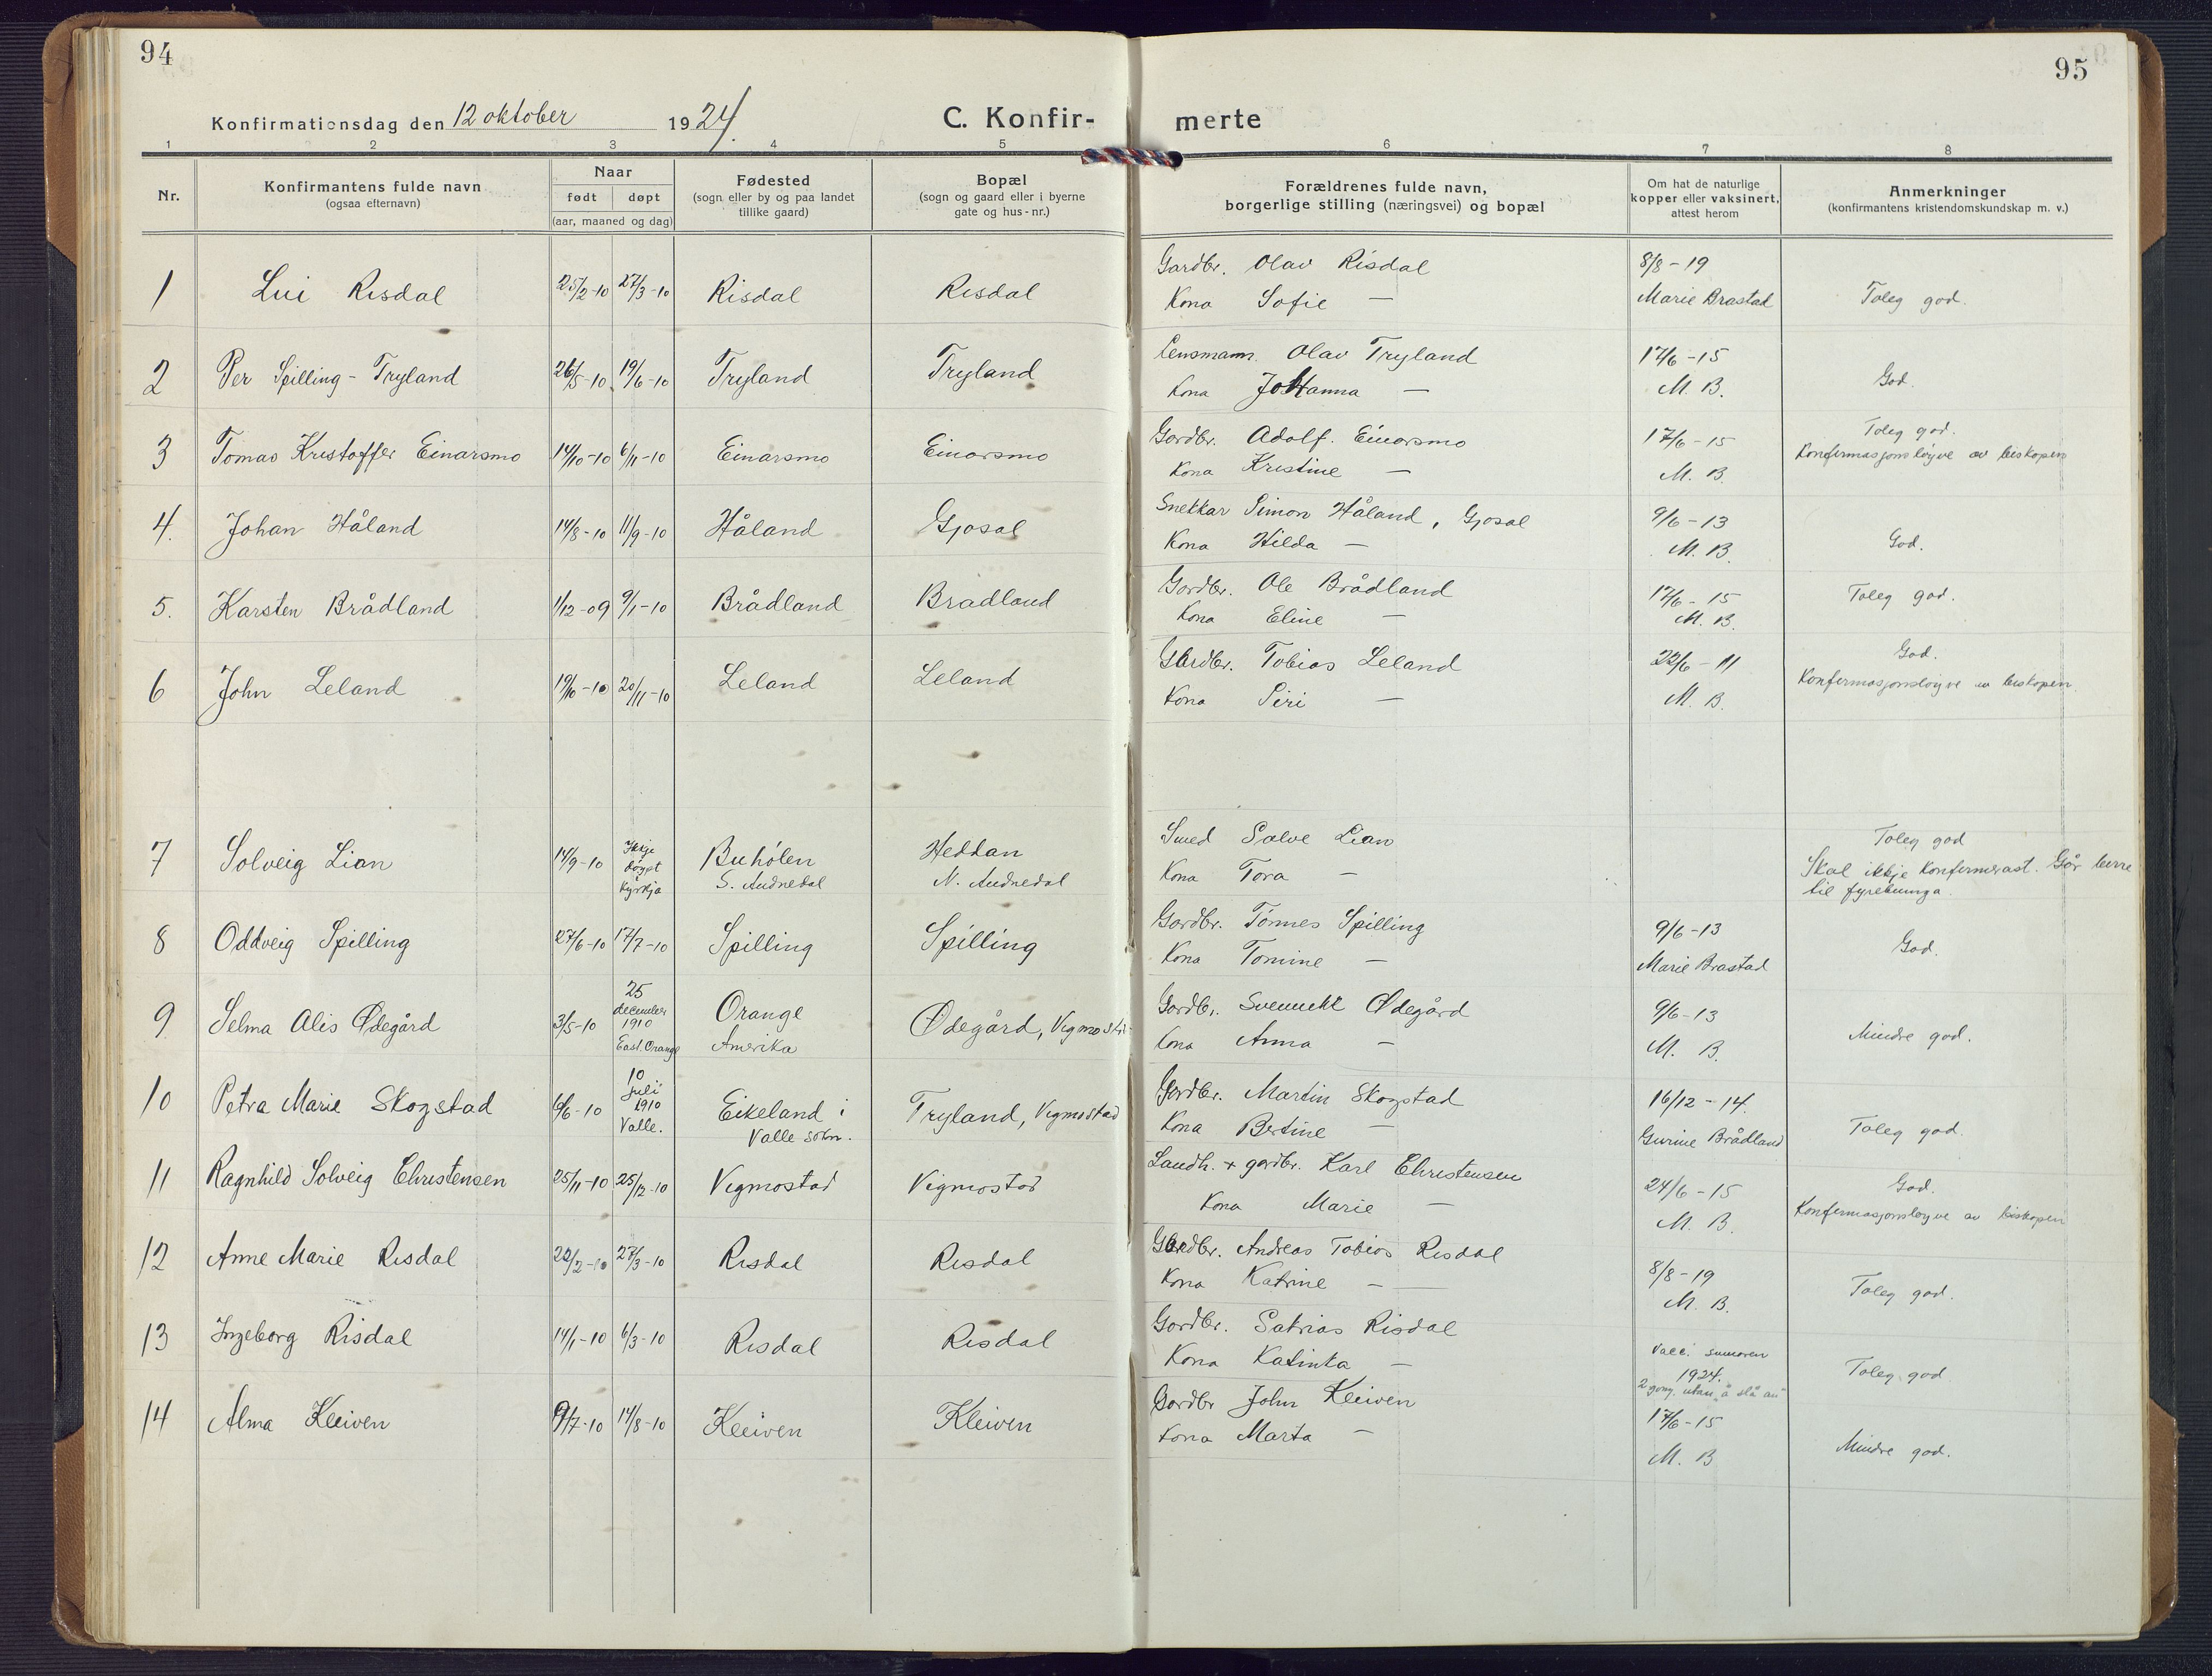 94
95
Konfirmationsdag den 12 oktober 1924.
C. Konfir-
merte
1 2 3 4 5 6 7 8
Nr.
Konfirmantens fulde navn
(ogsaa efternavn)
Naar
født døpt
(aar, maaned og dag)
Fødested
(sogn eller by og paa landet
tillike gaard)
Bopæl
(sogn og gaard eller i byerne
gate og hus-nr.)
Forældrenes fulde navn,
borgerlige stilling (næringsvei) og bopæl
Om hat de naturlige
kopper eller vaksinert,
attest herom
Anmerkninger
(konfirmantens kristendomskundskap m. v.)
1 Lui Risdal 25/2-10 27/3-10 Risdal Risdal Gardbr. Olav Risdal 8/8-19
Kona Sofie — Marie Brastad Toleg god.
2 Per Spilling-Tryland 26/5-10 19/6-10 Tryland Tryland Lensmann. Olav Tryland 17/6-15
Kona Johanna — M. B. God.
3 Tomas Kristoffer Einarsmo 14/10-10 6/11-10 Einarsmo Einarsmo Gardbr. Adolf. Einarsmo 17/6-15 Toleg god.
Kona Kristine — M. B. Konfirmasjonsløyve av biskopen
4. Johan Håland 14/8-10 11/9-10 Håland Gjosal Snekkar Simon Håland, Gjosal 9/6-13
Kona Hilda — M. B. God.
5. Karsten Brådland 1/12-09 9/1-10 Brådland Brådland Gardbr. Ole Brådland 17/6-15 Toleg god.
Kona Eline — M. B.
6 John Leland 19/10-10 20/11-10 Leland Leland Gardbr. Tobias Leland 22/6-11 God.
Kona Siri — M. B. Konfirmasjonsløyve av biskopen.
7 Solveig Lian 14/9-10 Ikkje døypt kyrkja Buhølen Heddan Smed Salve Lian Toleg god
S. Audnedal N. Audnedal Kona Tora — Skal ikkje konfirmerast. Går berre
til fyrebuinga.
8 Oddveig Spilling 27/6-10 17/7-10 Spilling Spilling Gardbr. Tønnes Spilling 9/6-13
Kona Tomine — Marie Brastad God.
9. Selma Alis Ødegård 3/5-10 25 december 1910 East. Orange Orange Ødegård, Vigmostad Gardbr. Ødegård 9/6-13
Amerika Kona Anna — M. B. Mindre god.
10 Petra Marie Skogstad 6/6-10 10 juli 1910 Valle. Eikeland i Tryland, Vigmostad Gardbr. Martin Skogstad 16/12-14.
Valle sokn. Kona Bertine — Gurine Brådland Toleg god.
11 Ragnhild Solveig Christensen 25/11-10 25/12-10 Vigmostad Vigmostad Landh. + gardbr. Karl Christensen 24/6-15 God.
Kona Marie — M. B. Konfirmasjonsløyve av biskopen
12 Anne Marie Risdal 22/2-10 27/3-10 Risdal Risdal Gardbr. Andreas Tobias Risdal 8/8-19
Kona Katrine — M. B. Toleg god.
13 Ingeborg Risdal 14/1-10 6/3-10 Risdal Risdal Gardbr. Risdal Vacc. sumaren
Kona Katinka — 1924. Toleg god
2 gong. utan å slå an
14 Alma Kleiven 9/7-10 14/8-10 Kleiven Kleiven Gardbr John Kleiven 17/6-15
Kona Marta — M. B Mindre god.